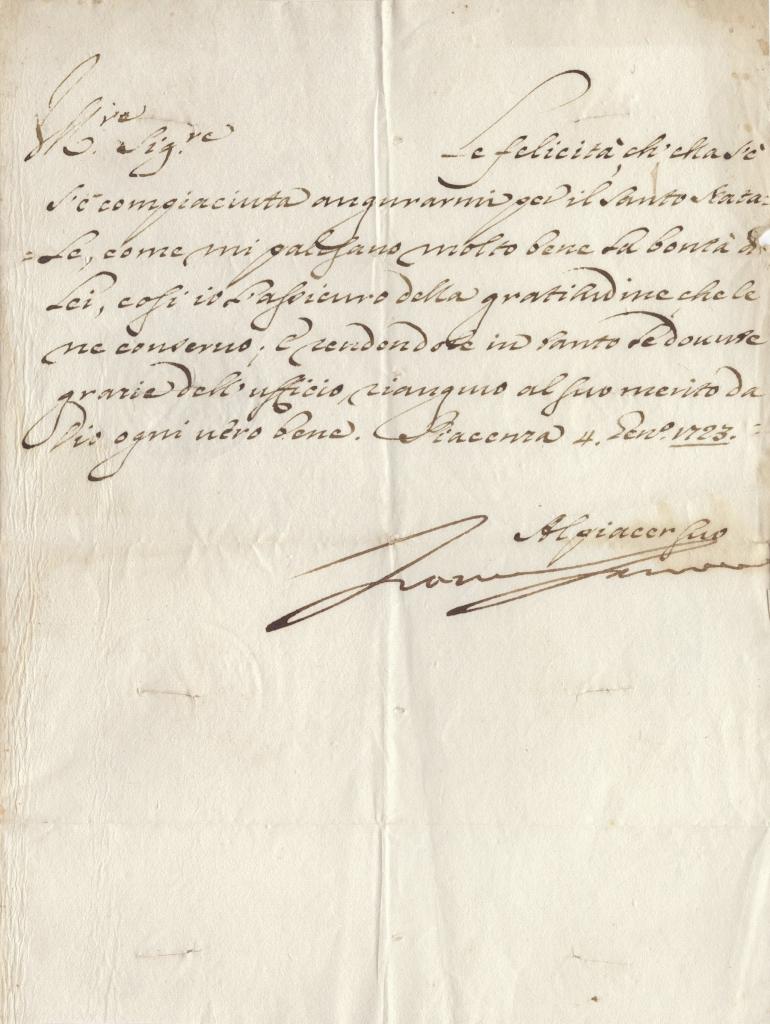 Ill.re Sig.re Le felicità, ch'ella s'è
s'è compiaciuta augurarmi per il Santo Nata=
=le, come mi palesano molto bene la bontà di
Lei, così io l'assicuro della gratitudine, che le
ne conservo; E rendendole in tanto le dovute
grazie dell'ufficio, riauguro al suo merito da
Dio ogni vero bene. Piacenza 4. Gen.o 1723.=
Al piacer suo